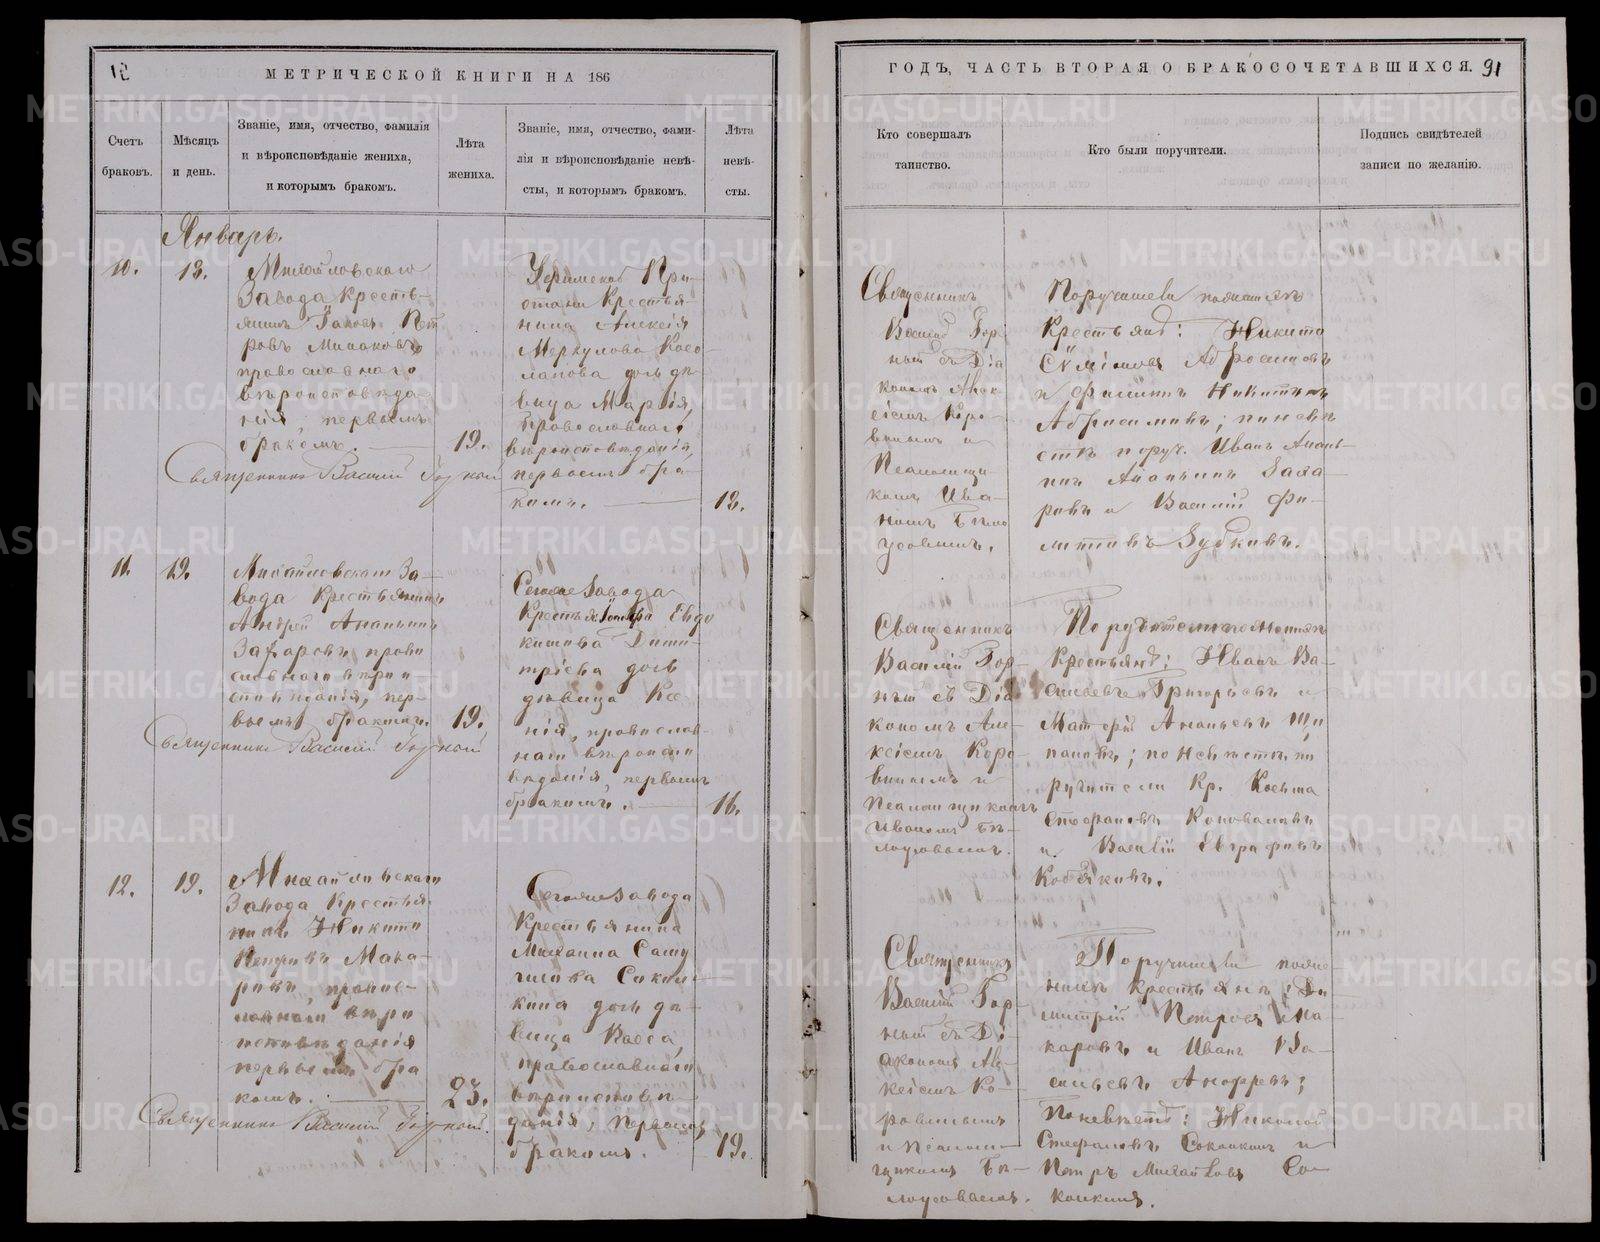 МЕТРИЧЕСКОЙ КНИГИ НА 186
Счетъ браковъ.
Мѣсяцъ и день.
Званіе, имя, отчество, фамилія
и вѣроисповѣданіе жениха,
и которымъ бракомъ.
Лѣта жениха.
Званіе, имя, отчество, фами-
лія и вѣроисповѣданіе невѣ-
сты, и которымъ бракомъ.
Лѣта невѣ-
сты.
Январь.
10.
13.
Михайловскаго
Завода Кресть-
янинъ Іаковъ Пет
ровъ
православнаго
вѣроисповѣда-
нія, первымъ
бракомъ.
19.
Священникъ Василій Горной
Уфимской При-
стани Крестья-
нина Алексія
Меркулова Косо-
лапова дочь дѣ-
вица Марія,
православнаго
вѣроисповѣданія,
первымъ бра-
комъ.
18.
11.
19.
Михайловскаго За-
вода Крестьянинъ
Андрей Ананьинъ
Захаровъ право
славнаго вѣрои
сповѣданія, пер-
вымъ бракомъ.
19.
Священникъ Василій Горной
Сегоже Завода
Евдо
кимова Дими-
тріева дочь
дѣвица Ксе
нія, православ-
наго вѣроиспо
вѣданія, первымъ
бракомъ.
16.
12.
19.
Михайловскаго
Завода Крестья-
нинъ Никита
Петровъ Мака-
ровъ, правос-
лавнаго вѣро
исповѣданія
первымъ бра
комъ.
23.
Священникъ Василій Горной.
Сегоже Завода
Крестьянина
Михаила
Сокол-
кина дочь дѣ-
вица Васса,
православнаго
вѣроисповѣ-
данія, первымъ
бракомъ.
19.
ГОДЪ, ЧАСТЬ ВТОРАЯ О БРАКОСОЧЕТАВШИХСЯ.
91
Кто совершалъ
таинство.
Кто были поручители.
Подпись свидѣтелей
записи по желанію.
Священникъ
Василій Гор-
ный съ Діа
кономъ Алек-
сіемъ Коро-
винымъ и
Псаломщи-
комъ Ива-
номъ Бѣло
усовымъ.
Поручители по женихѣ
Крестьяне: Никита
Абросимовъ
и Филиппъ Никитинъ
Абросимовъ; по невѣ
стѣ поруч. Иванъ Анань-
инъ Заха-
ровъ и Василій Фи-
липповъ Зубковъ.
Священникъ
Василій Гор-
ный съ Діа
кономъ Але-
ксіемъ Коро
винымъ и
Псаломщикомъ
Иваномъ Бѣ-
лоусовымъ.
Поручители по женихѣ
Крестьяне: Иванъ Ва-
сильевъ Григорьевъ и
Ананьевъ
; по невѣстѣ по
ручители Кр. Косьма
Стефановъ Коноваловъ
и Василій Евграфовъ
Кобяковъ.
Священникъ
Василій Гор-
ный съ Ді-
акономъ Але-
ксіемъ Ко-
ровинымъ
и Псалом-
щикомъ Бѣ-
лоусовымъ.
Поручители по же
нихѣ Крестьяне: Ди
митрій Петровъ Ма-
каровъ и Иванъ Ва-
сильевъ;
По невѣстѣ: Николай
Стефановъ Соколкинъ и
Петръ Михайловъ Со-
колкинъ.